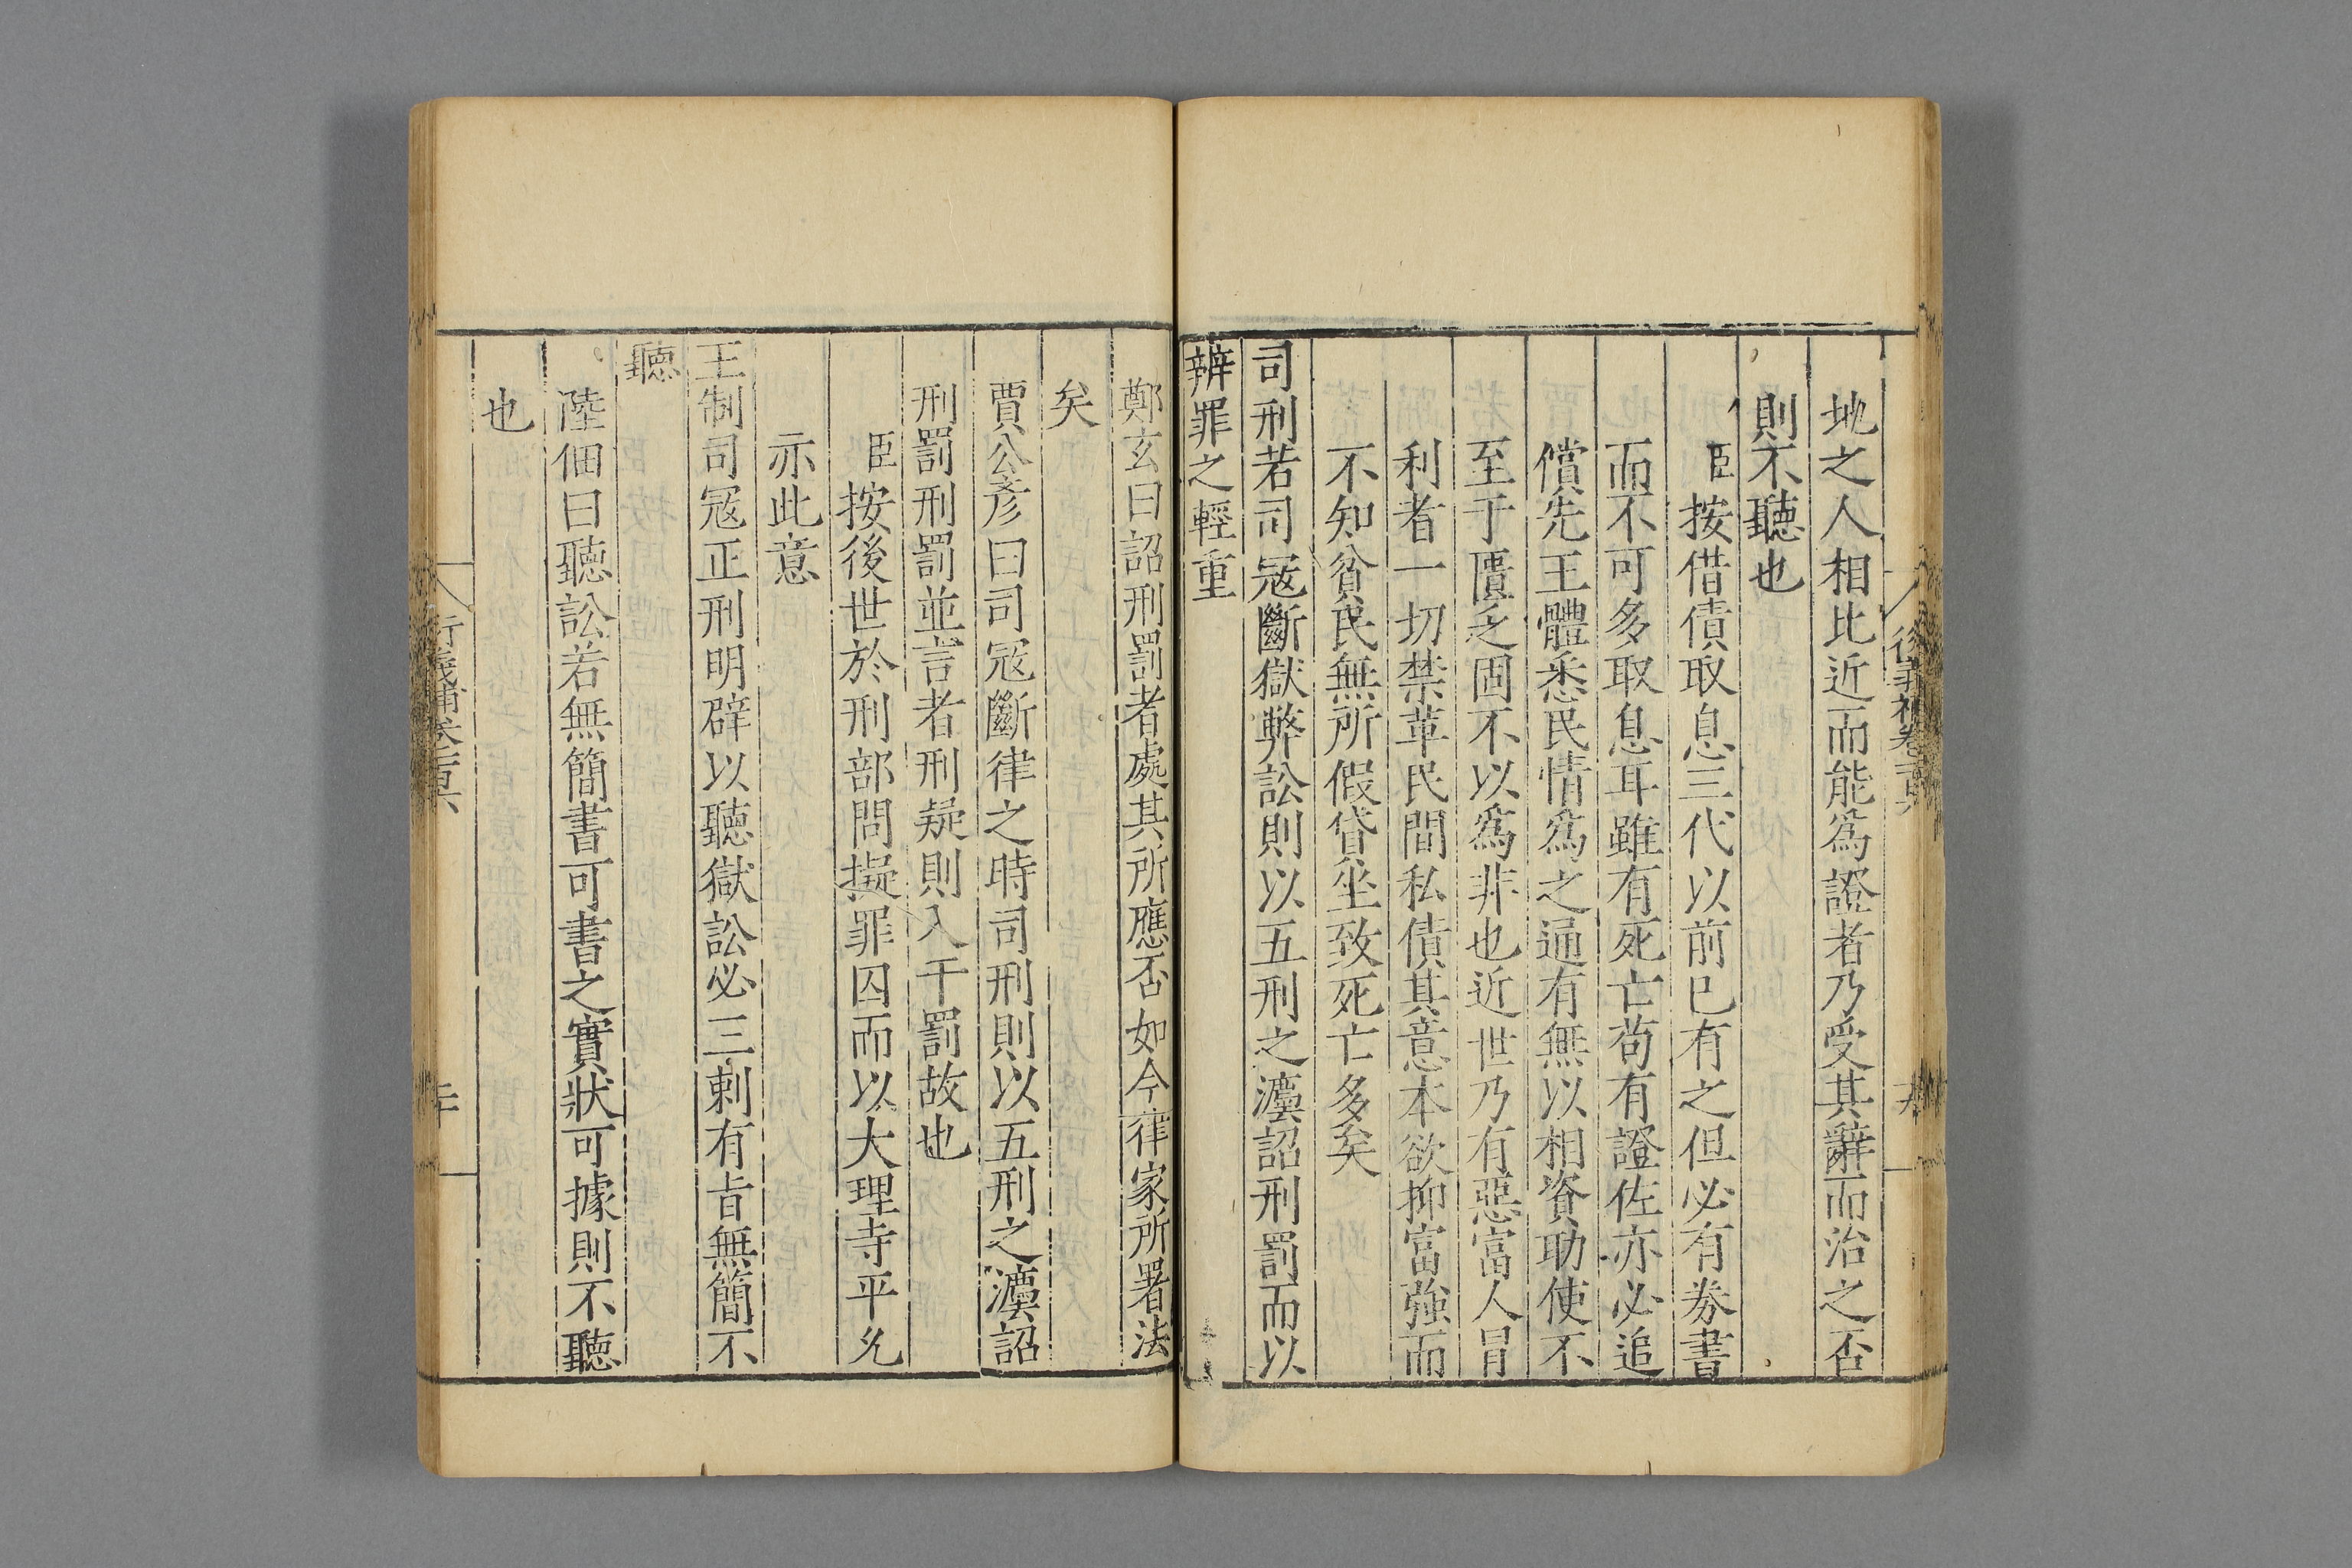 地之人相比近而能爲證者乃受其辭而治之否
則不聽也
臣按借債取息三代以前已有之但必有券書
而不可多取息耳雖有死亡苟有證佐亦必追
償先王體悉民情爲之通有無以相資助使不
至于匱乏固不以爲非也近世乃有惡富人冒
利者一切禁革民間私債其意本欲抑富強而
不知貧民無所假貸坐致死亡多矣
司刑若司寇斷獄弊訟則以五刑之灋詔刑罰而以
辨罪之輕重
鄭玄曰詔刑罰者處其所應否如今律家所署法
矣
賈公彥曰司寇斷律之時司刑則以五刑之灋詔
刑罰刑罰並言者刑疑則入于罰故也
臣按後世於刑部問擬罪囚而以大理寺平允
亦此意
王制司寇正刑明辟以聽獄訟必三刺有旨無簡不
聽
陸佃曰聽訟若無簡書可書之實狀可據則不聽
也